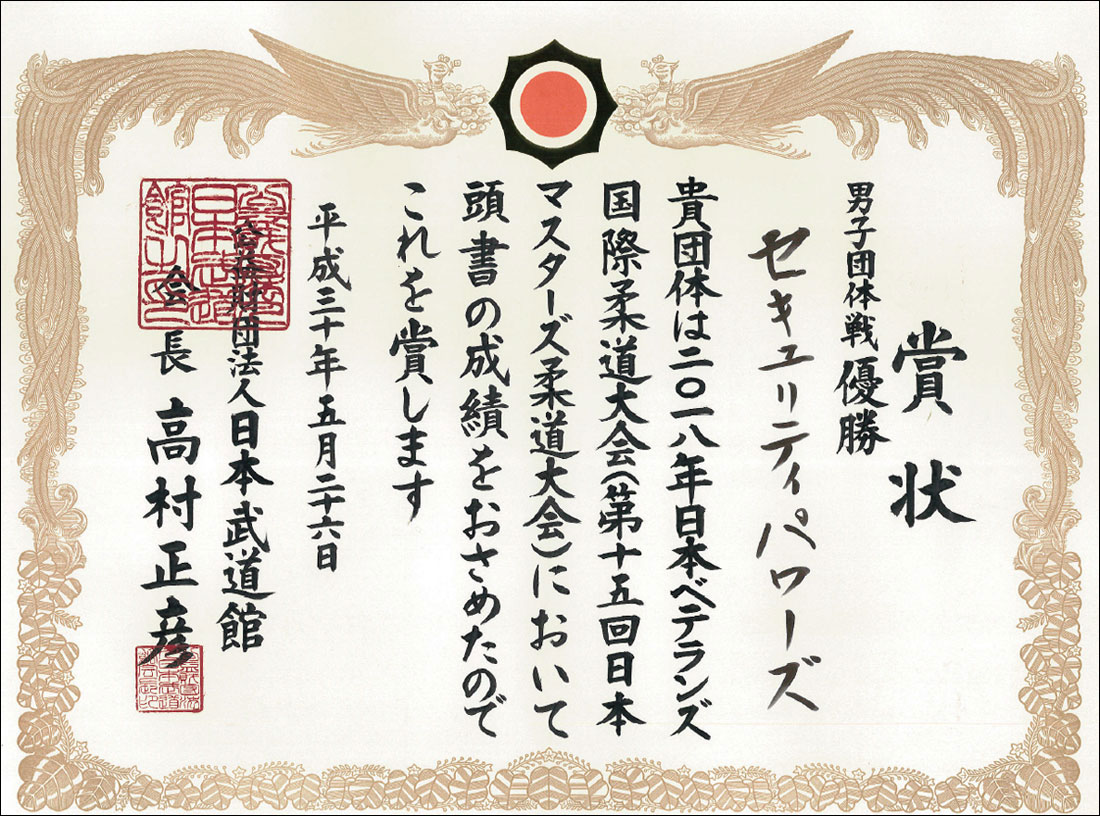 賞状
男子団体戦優勝
セキュリティパワーズ
貴団体は二〇一八年日本ベテランズ
国際柔道大会(第十五回日本
マスターズ柔道大会)において
頭書の成績をおさめたので
これを賞します
平成三十年五月二十六日
公益財団法人日本武道館
会長 高村正彦